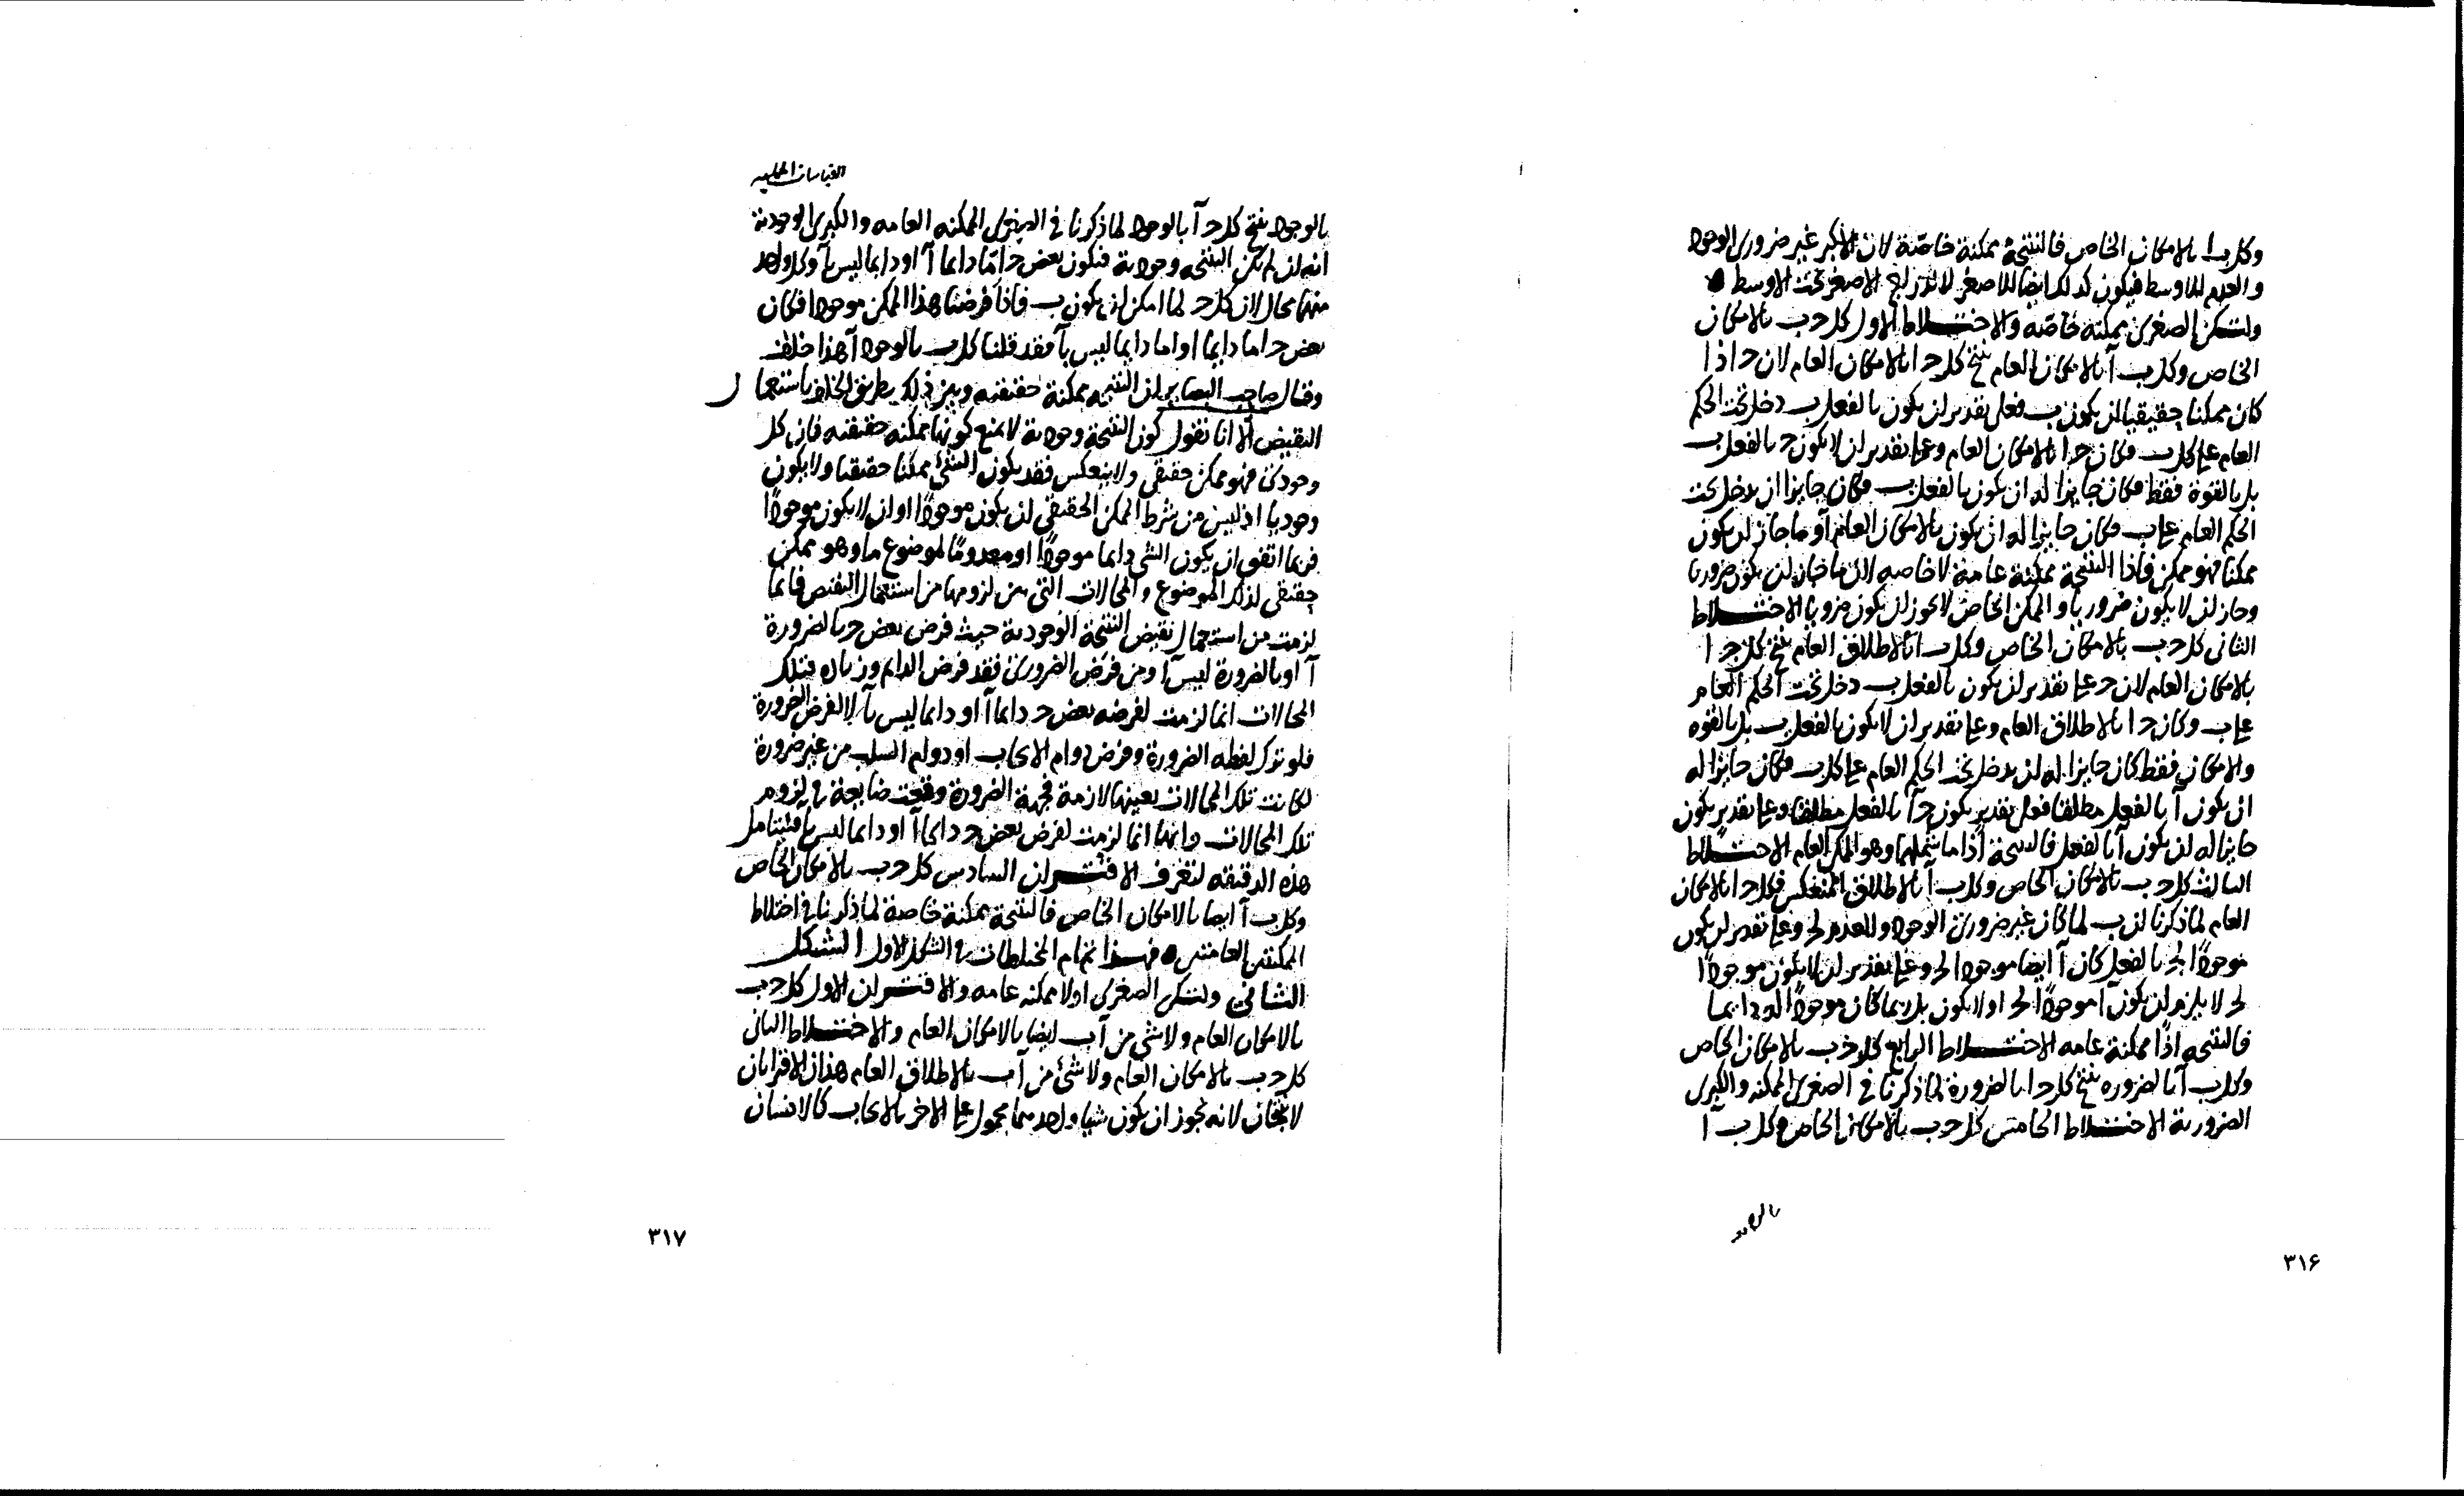 وكل ب ا بالامكان الخاص فالنتيجة ممكنة خاصّة لان الاكبر غير ضرورى الوجود
والعدم للاوسط فيكون كذلك ايضا للاصغر لاندراج الاصغر تحت الاوسط
ولتكن الصغرى ممكنة خاصّة والاختلاط الاول كل ج ب بالامكان
الخاص وكل ب آ بالامكان العام ينتج كل ج ا بالامكان العام لان ج اذا
كان ممكنا حقيقيا ان يكون ب فعلى تقدير ان يكون بالفعل ب دخل تحت الحكم
العام على كل ب فكان ج ا بالامكان العام وعلى تقدير ان لا يكون ج بالفعل ب
بل بالقوة فقط فكان جايزا له ان يكون بالفعل ب فكان جايزا ان يدخل تحت
الحكم العام على ب فكان جايزا له ان يكون بالامكان العام آ وما جاز ان يكون
ممكنا فهو ممكن فاذا النتيجة ممكنة عامة لا خاصه لان ما جاز ان يكون ضروريا
وجاز ان لا يكون ضروريا والممكن الخاص لا يجوز ان يكون ضروريا الاختلاط
الثانى كل ج ب بالامكان الخاص وكل ب ا بالاطلاق العام ينتج كل ج ا
بالامكان العام لان ج على تقدير ان يكون بالفعل ب دخل تحت الحكم العام
على ب وكان ج ا بالاطلاق العام وعلى تقدير ان لا يكون بالفعل ب بل بالقوه
والامكان فقط كان جايزا له ان يدخل تحت الحكم العام على كل ب فكان جايزا له
ان يكون آ بالفعل مطلقا فعلى تقدير يكون ج آ بالفعل مطلقا وعلى تقدير يكون
جايزا له ان يكون آ بالفعل فالنتيجة اذا ما يشملهما وهو الممكن العام الاختلاط
الثالث كل ج ب بالامكان الخاص وكل ب آ بالاطلاق المنعكس فكل ج ا بالامكان
العام لما ذكرنا ان ب لما كان غير ضرورى الوجود والعدم لج وعلى تقدير ان يكون
موجودًا لج بالفعل كان آ ايضا موجودا لج وعلى تقدير ان لا يكون موجودًا
لج لا يلزم ان يكون آ موجودًا لج او لا يكون بل ربما كان موجودًا له دايما
فالنتيجه اذًا ممكنة عامه الاختلاط الرابع كل ج ب بالامكان الخاص
وكل ب آ بالضروره ينتج كل ج ا بالضرورة لما ذكرنا فى الصغرى الممكنه والكبرى
الضرورية الاختلاط الخامس كل ج ب بالامكان الخاص وكل ب آ
٣١۶
القياسات الحملية
بالوجود ينتج كل ج آ بالوجود لما ذكرنا فى الصغرى الممكنه العامه والكبرى الوجودية
انه ان لم تكن النتيجه وجودية فيكون بعض ج امّا دايما آ او دايما ليس بآ وكل واحد
منهما محال لان كل ج لما امكن ان يكون ب فاذا فرضنا هذا الممكن موجودا فكان
بعض ج اما دايما ا واما دايما ليس بآ فقد قلنا كل ب بالوجود آ هذا خلف
وقال صاحب البصاير ان النتيجه ممكنة حقيقيه وبين ذلك بطريق الخلف باستعمال
النقيض الّا انا نقول كون النتيجة وجودية لا يمنع كونها ممكنه حقيقيه فان كل
وجودى فهو ممكن حقيقى ولا ينعكس فقد يكون الشئ ممكنا حقيقيا ولا يكون
وجوديا اذ ليس من شرط الممكن الحقيقى ان يكون موجودًا او ان لا يكون موجودًا
فربما اتفق ان يكون الشى دايما موجودًا او معدومًا لموضوع ما وهو ممكن
حقيقى لذلك الموضوع والمحالات التى بين لزومها من استعمال النقيض فانما
لزمت من استعمال نقيض النتيجة الوجودية حيث فرض بعض ج بالضرورة
آ او بالضرورة ليس آ ومن فرض الضرورى فقد فرض الدايم وزياده فتلك
المحالات انما لزمت لفرضه بعض ج دايما آ او دايما ليس بآ لا لفرض الضرورة
فلو ترك لفظه الضرورة وفرض دوام الايجاب او دوام السلب من غير ضرورة
لكانت تلك المحالات بعينها لازمة فجهة الضرورة وقعت ضايعة فى لزوم
تلك المحالات وانها انما لزمت لفرض بعض ج دايما آ او دايما ليس بآ فليتامل
هذه الدقيقه لتعرف الاقتران السادس كل ج ب بالامكان الخاص
وكل ب آ ايضا بالامكان الخاص فالنتيجة ممكنة خاصة لما ذكرنا فى اختلاط
الممكنتين العامتين فهذا تمام المختلطات فى الشكل الاول الشكل
الثانى ولتكن الصغرى اولا ممكنه عامه والاقتران الاول كل ج ب
بالامكان العام ولا شئ من آ ب ايضا بالامكان العام والاختلاط الثانى
كل ج ب بالامكان العام ولا شئ من آ ب بالاطلاق العام هذان الاقترانان
لا ينتجان لانه يجوز ان يكون شيا واحد منهما محمول على الاخر بالايجاب كالانسان
٣١٧